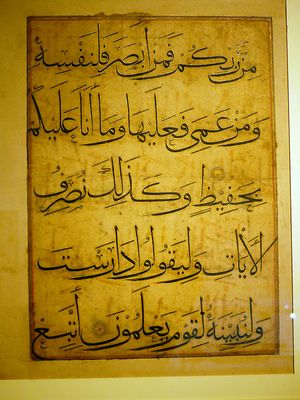 من ربكم فمن أبصر فلنفسه
ومن عمى فعليها وما أنا عليكم
بحفيظ وكذلك نصرف
الآيات وليقولوا دارست
ولنبينه لقوم يعلمون اتبع